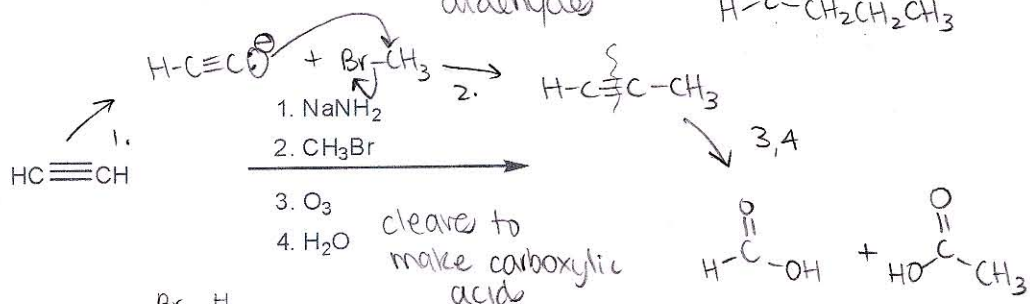 aldehydes
H-C-CH₂CH₂CH₃
H-C≡C:⊖ + Br-CH₃ → 2. H-C≡C-CH₃
1.
1. NaNH₂
2. CH₃Br
3,4
HC≡CH
3. O₃
4. H₂O
cleave to
make carboxylic
acids
O
H-C-OH + HO-C-CH₃
O
Br H